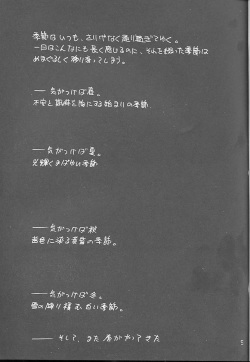 季節はいつも、さりげなく通り過ぎてゆく。
一日はこんなにも長く感じるのに、それを綴った季節は
めまぐるしく移り変ってしまう。
── 気がつけば春。
不安と期待を胸にする始まりの季節。
── 気がつけば夏。
光輝くまばゆい季節。
── 気がつけば秋
茜色に染る黄昏の季節。
── 気がつけば冬。
雪の降り積もる白い季節。
── そして、また春がやってきた
5